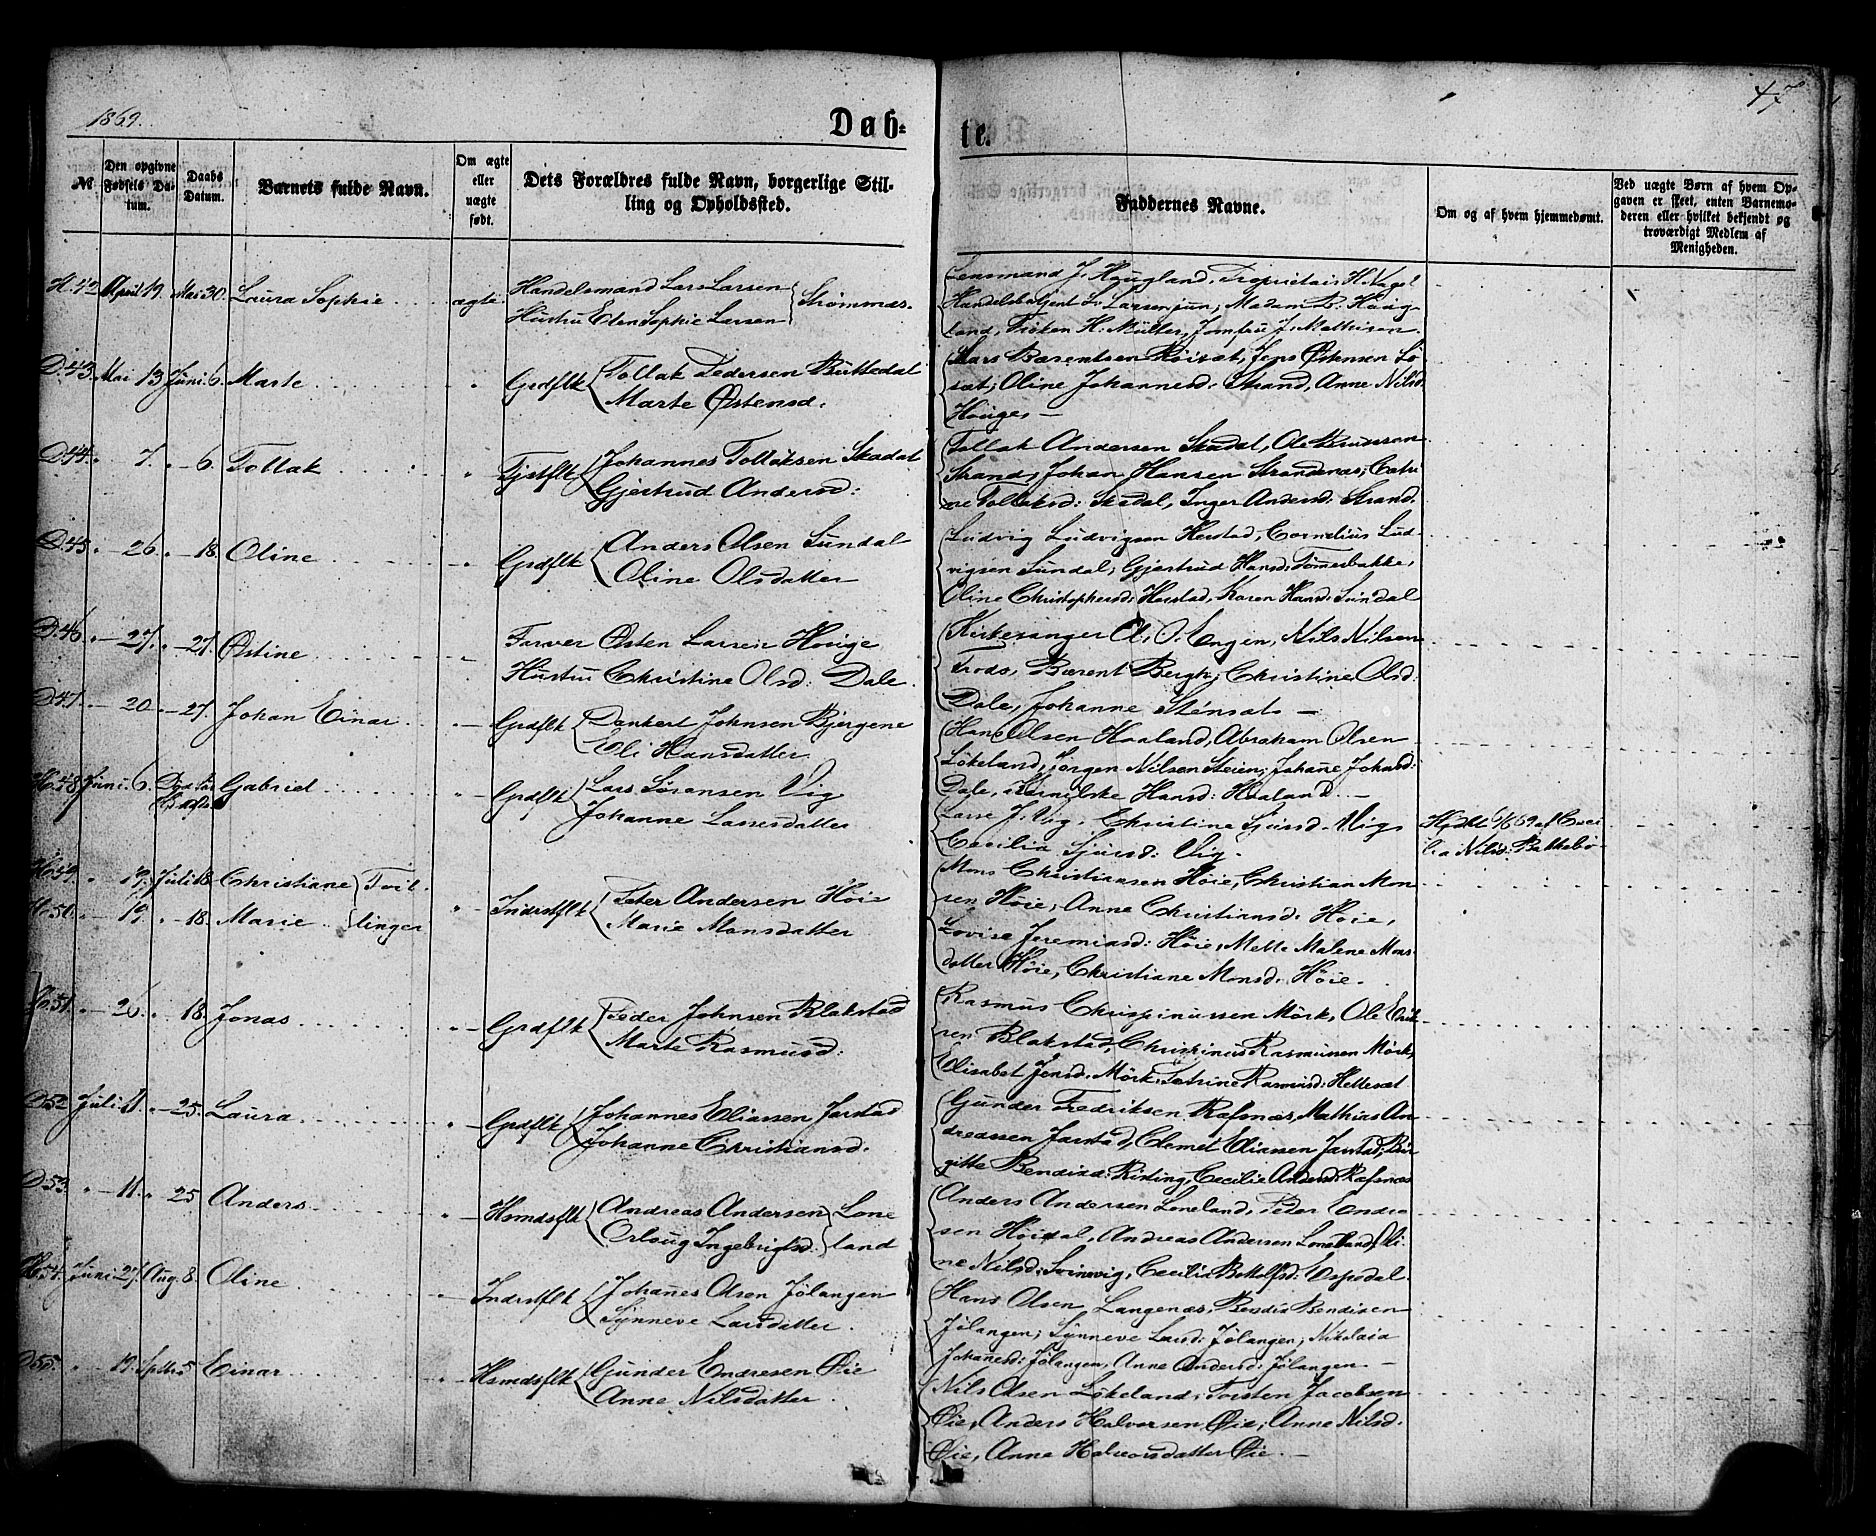 1869.
Døb-
te.
47
№
Den opgivne Fødsels Datum.
Daabs Datum.
Barnets fulde Navn.
Om ægte eller uægte født.
Dets Forældres fulde Navn, borgerlige Stilling og Opholdssted.
Faddernes Navne.
Om og af hvem hjemmedøbt.
Ved uægte Børn af hvem Opgaven er skeet, enten Barnemoderen eller hvilket bekjendt og troværdigt Medlem af Menigheden.
H. 42 April 19. Mai 30. Laura Sophie ægte
Handelsmand Lars Larsen
Hustru Elen Sophie Larsen
Strømnæs.
Lensmand J. Hougland, Proprietair H. Vagel
Handelsbetjent L. Larsen jun; Madam B. Houg-
land, Frøken H. Müller, Jomfru J. Mathisen.
D. 43. Mai 13 Juni 6. Marte
Grdflk Tollak Pedersen Büttedal
Marte Østensd.
Lars Bærentsen Röisæt, Jens Østensen Lö
sæt; Oline Johannesd: Strand, Anne Nilsd
Houge —
D. 44. " 7. " 6. Tollak
Tjstflk Johannes Tollaksen Skadal
Gjertrud Andersd:
Tollak Andersen Skadal, Ole
Strand, Johan Hansen Strandenæs; Catri
ne Tollaksd: Skadal, Inger Andersd: Strand.
D. 45 " 26. " 18. Oline
Grdflk Anders Olsen Sundal
Oline Olsdatter
Ludvig Ludvigsen Herstad, Cornelius Lud-
vigsen Sundal; Gjertrud Hansd: Tømmerbakke,
Oline Christophersd: Herstad, Karen Hansd: Sundal
D. 46 " 27. " 27. Østine
Farver Østen Larsen Houge
Hustru Christine Olsd: Dale.
Kirkesanger A. O. Engen, Nils Nilsen
Trods, Bærent Bergh; Christine Olsd:
Dale, Johanne Stensæt —
D. 47. " 20. " 27. Johan Einar
Grdflk Dankert Johnsen Bjergene
Eli Hansdatter
Hans Olsen Haaland, Abraham Olsen
Lökeland, Jörgen Nilsen Steien; Johane Johansd:
Dale, Hansd: Haaland.
H. 48 Juni 6. Død før Daaben Gabriel
Grdflk Lars Sörensen Vig
Johanne Larsdatter
Lasse J. Vig, Christine Sjursd: Vig,
Cecilia Sjursd: Vig.
Hjdbt 6/6 69 af Ceci
lia Nilsd: Bakkebö
H. 49. " 19. Juli 18. Christiane
H. 50. " 19. " 18. Marie
Tvil-
linger
Indrstflk Peter Andersen Höie
Marie Monsdatter
Mons Christiansen Höie, Christian Mon-
sen Höie, Anne Christiansd: Höie,
Lovise Jeremiasd: Höie, Mette Malene Mons-
datter Höie, Christiane Monsd: Höie.
H. 51. " 26. " 18. Jonas
Grdflk Peder Johnsen Blakstad
Marte Rasmusd:
Rasmus Chrispinussen Mörk, Ole Erik
sen Blakstad, Chrispinus Rasmussen Mörk,
Elisabet Jensd: Mörk, Petrine Rasmusd: Hellesæt
D. 52 Juli 11. " 25. Laura
Grdflk Johannes Eliassen Jarstad
Johanne Christiansd.
Gunder Fredriksen Rafsnæs, Mathias An-
dreassen Jarstad, Clemet Eliassen Jarstad, Bir-
gitte Bendixd: Risting, Cecilie Andersd: Rafsnæs
D. 53. " 11. " 25 Anders
Hsmdsflk Andreas Andersen
Orlaug Ingebrigtsd:
Lone
land
Anders Andersen Loneland, Peder Endre
sen Höidal, Andreas Andersen Loneland, Oli-
ne Nilsd: Svinevig, Cecilie Bottolfsd: Espedal.
H. 54. Juni 27. Aug. 8. Oline
Indrstflk Johanes Olsen Jölangen
Synneve Larsdatter.
Hans Olsen Langenæs, Bendix Bendixen
Jölangen; Synneve Larsd: Jölangen; Nikolaia
Johanesd: Jölangen, Anne Andersd: Jölangen. —
D. 55. " 19. Septbr 5 Einar
Hsmdsflk Gunder Endresen Øie
Anne Nilsdatter.
Nils Olsen Lökeland; Torsten Jacobsen
Øie, Anders Halvorsen Øie; Anne Nilsd.
Øie, Anne Halvorsdatter Øie. —